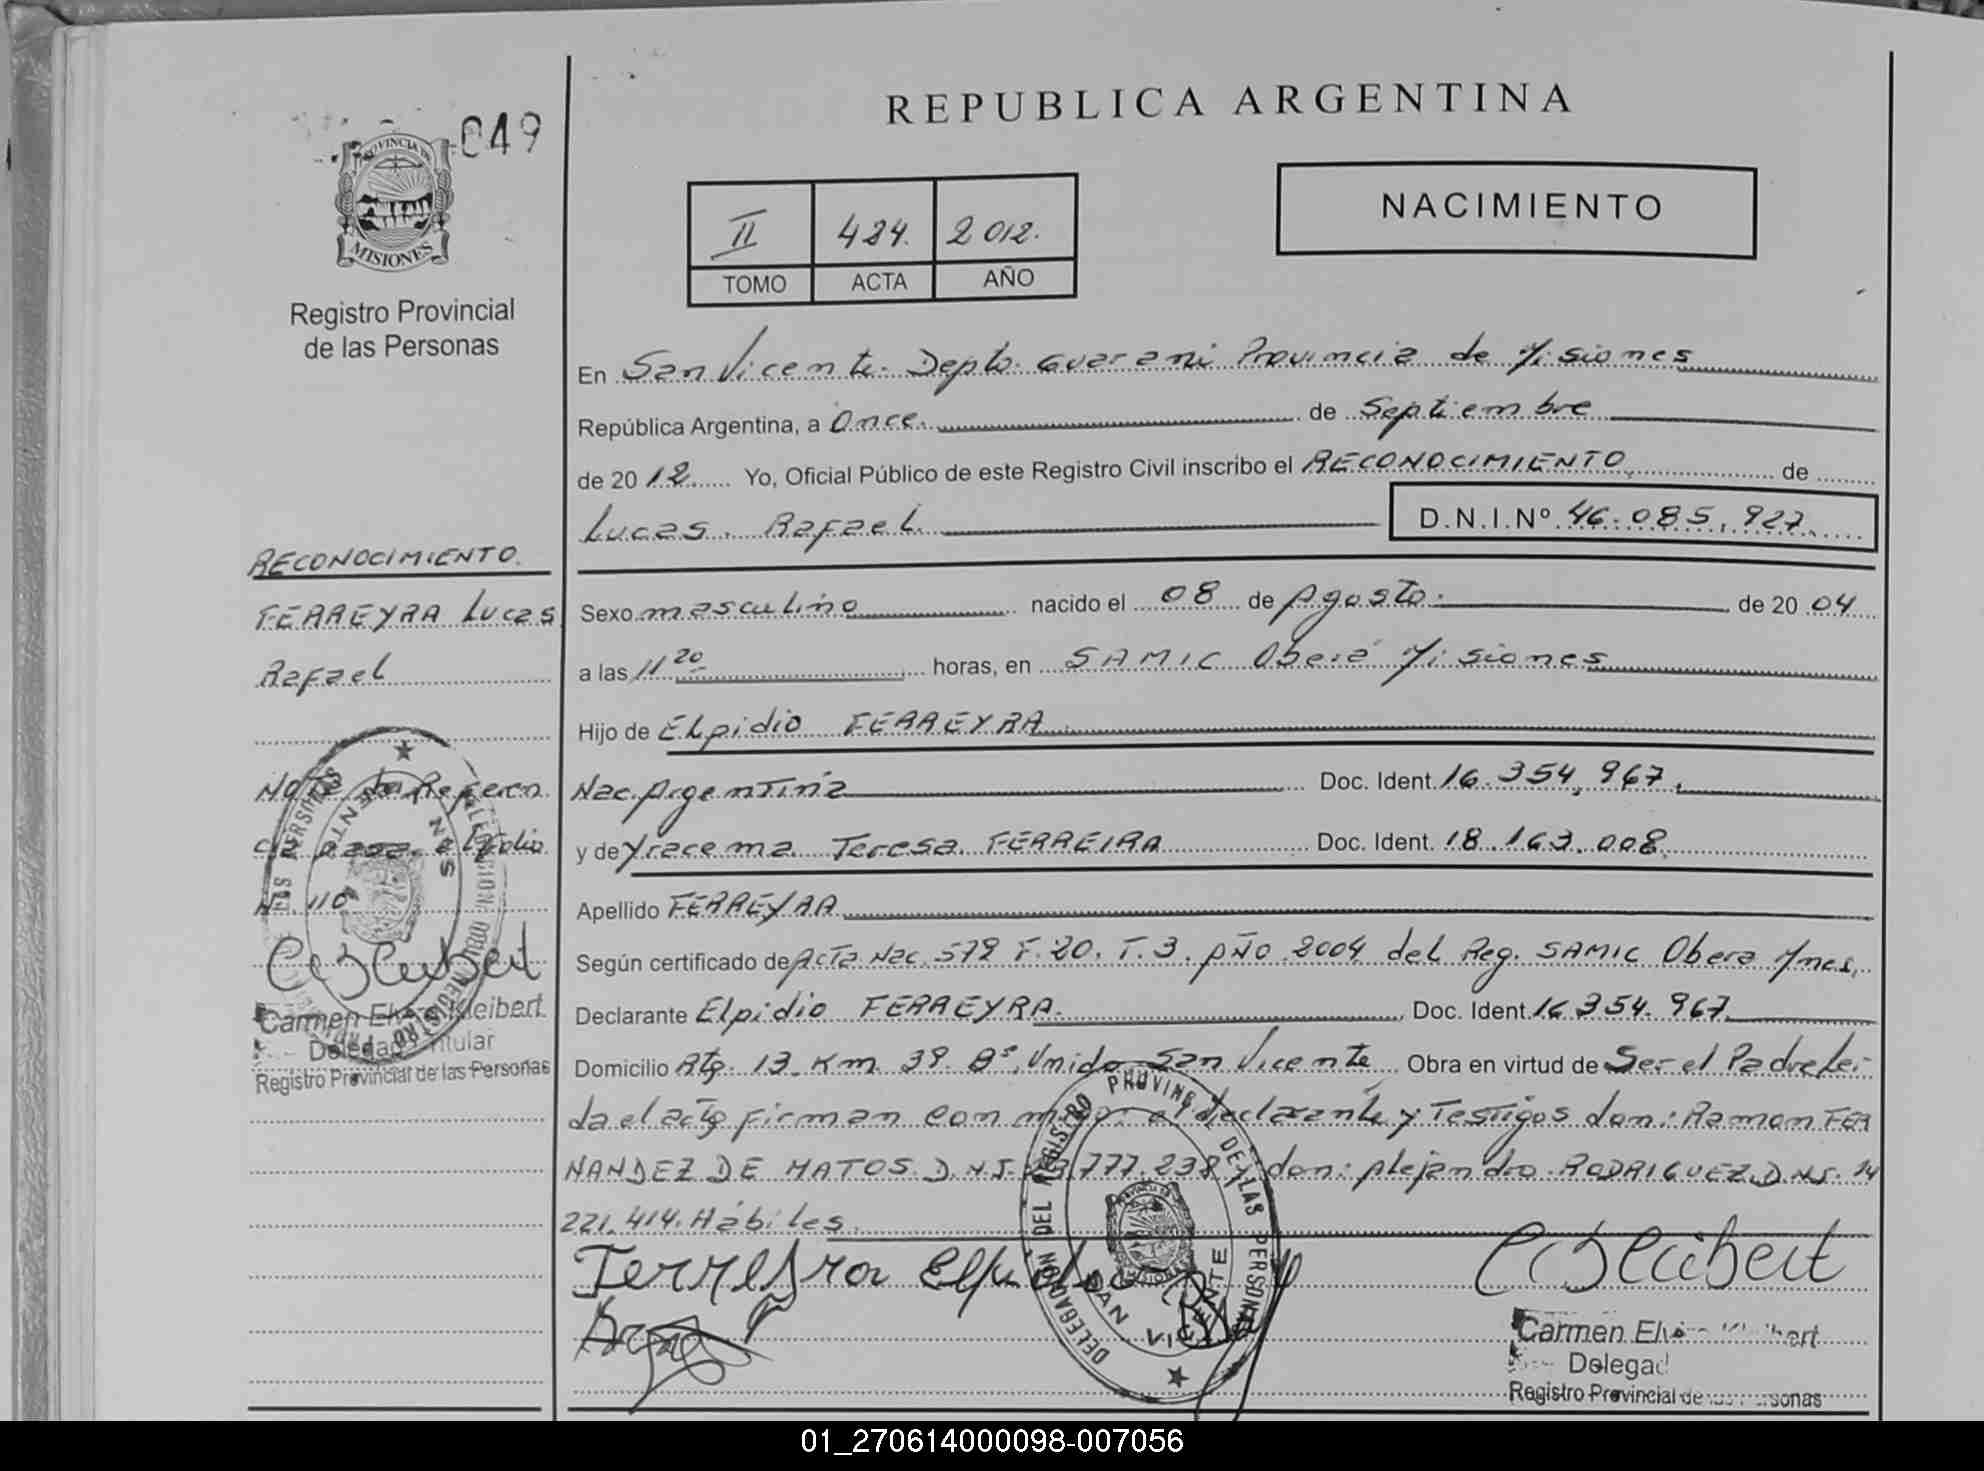 049
PROVINCIA DE
MISIONES
Registro Provincial
de las Personas
REPUBLICA ARGENTINA
II 424. 2012.
TOMO ACTA AÑO
NACIMIENTO
En San Vicente. Depto. Guarani Provincia de Misiones
República Argentina, a Once. de Septiembre
de 20 12 Yo, Oficial Público de este Registro Civil inscribo el RECONOCIMIENTO de
Lucas. Rafael. D.N.I.Nº 46.085.927.
Sexo masculino nacido el 08 de Agosto. de 20 04
a las 11 20 horas, en SAMIC Oberá Misiones
Hijo de Elpidio FERREYRA
Nac. Argentina Doc. Ident. 16.354.967.
y de Yracema Teresa FERREIRA Doc. Ident. 18.163.008.
Apellido FERREYRA
Según certificado de Acta Nac. 579 F. 20. T. 3. AÑO 2004 del Reg. SAMIC Obera Mnes.
Declarante Elpidio FERREYRA. Doc. Ident. 16.354.967.
Domicilio Rta. 13. Km. 39. Bº. Unido San Vicente Obra en virtud de Ser el Padre Lei-
da el acta firman con migo: el declarante y Testigos don: Ramon FER
NANDEZ DE MATOS. D.N.I. 777.238 y don: Alejandro RODRIGUEZ D.N.I. 14
221.414. Hábiles.
Ferreyra Elpidio
CEKleibert
Carmen Elvira Kleibert
Delegad
Registro Provincial de las Personas
DELEGACION DEL REGISTRO PROVINCIAL DE LAS PERSONAS
SAN VICENTE
RECONOCIMIENTO.
FERREYRA Lucas
Rafael
Nota de Referen
cia pasa al folio
Nº 110
CEKleibert
Carmen Elvira Kleibert
Delegada Titular
Registro Provincial de las Personas
01_270614000098-007056